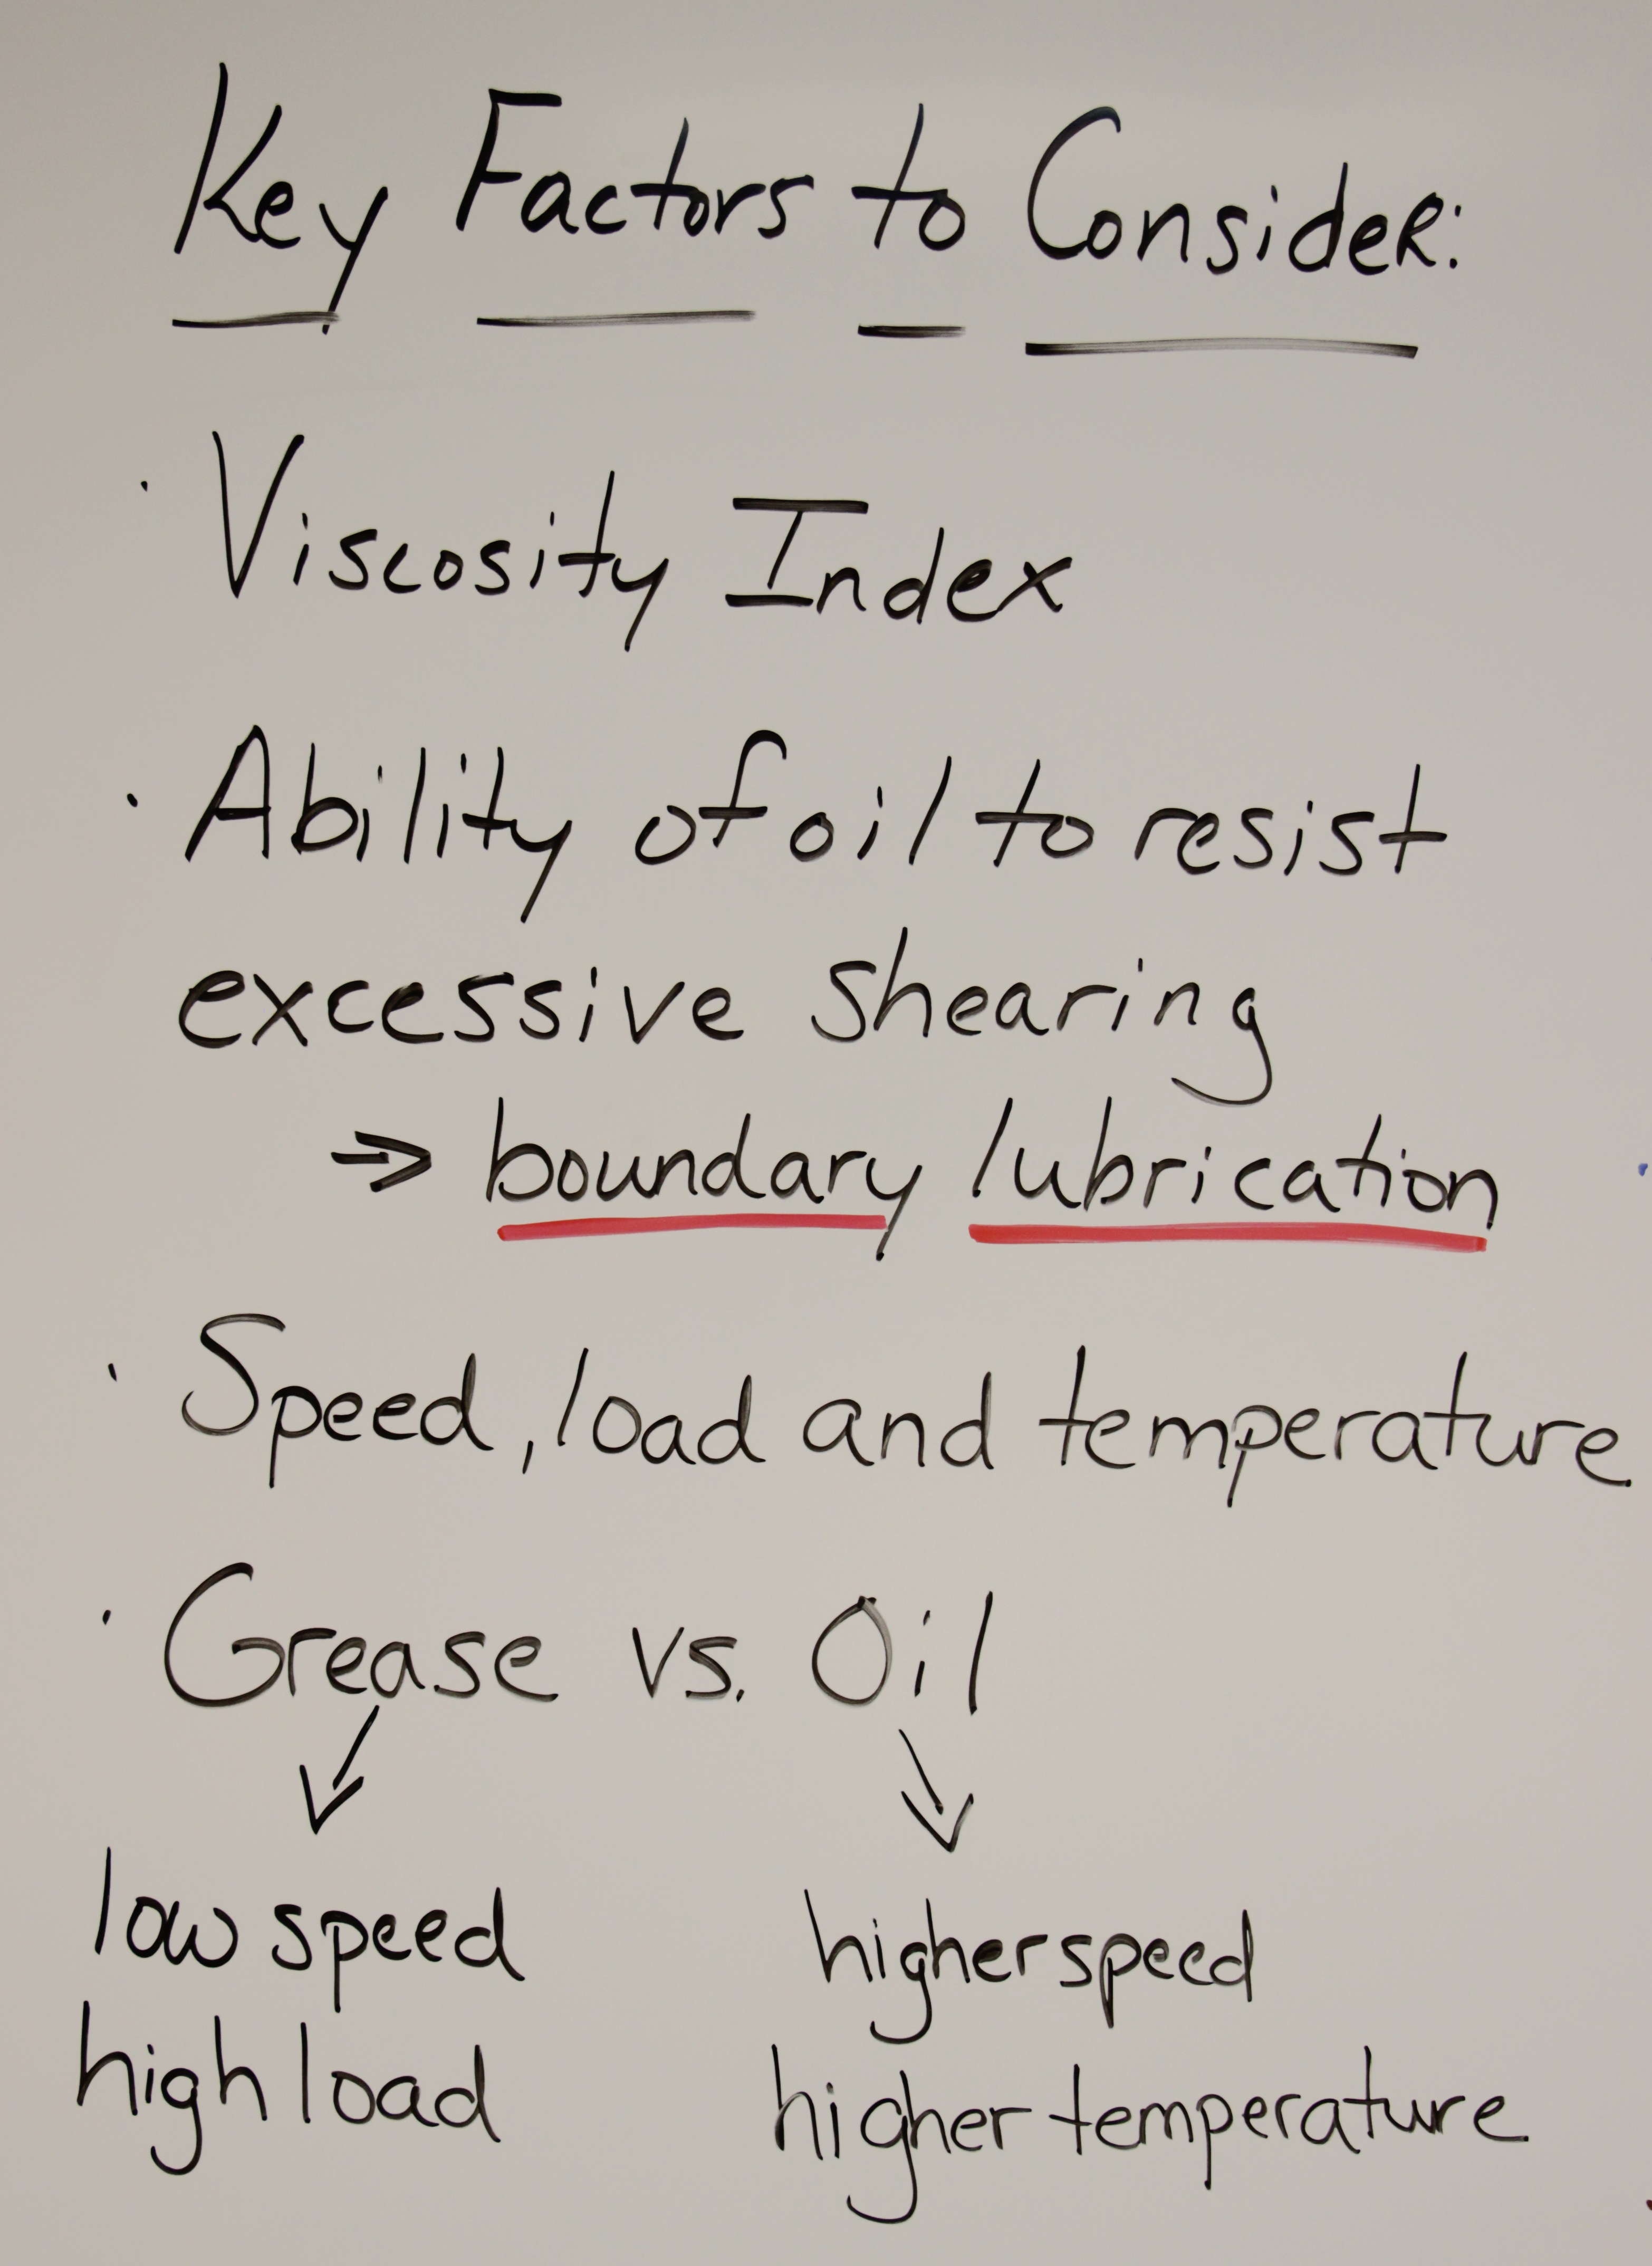 Key Factors to Consider:
· Viscosity Index
· Ability of oil to resist
excessive shearing
⇒ boundary lubrication
· Speed, load and temperature
· Grease vs. Oil
low speed higher speed
high load higher temperature